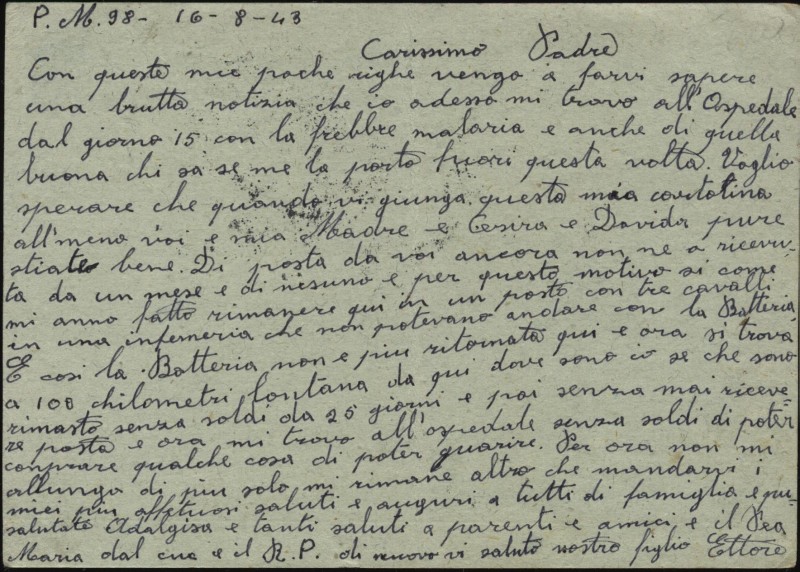 P.M. 98 - 16 - 8 - 43
Carissimo Padre
Con queste mie poche righe vengo a farvi sapere
una brutta notizia che io adesso mi trovo all'Ospedale
dal giorno 15 con la frebbre malaria e anche di quella
buona chi sa se me la porto fuori questa volta. Voglio
sperare che quando vi giunga questa mia cartolina
all'meno voi e mia Madre e Cesira e Davida pure
stiate bene. Di posta da voi ancora non ne o ricevu-
ta da un mese e di nesuno e per questo motivo si come
mi anno fatto rimanere qui in un posto con tre cavalli
in una infermeria che non potevano andare con la Batteria
E cosi la Batteria non e piu ritornata qui e ora si trova
a 100 chilometri lontana da qui dove sono io se che sono
rimasto senza soldi da 25 giorni e poi senza mai riceve-
re posta e ora mi trovo all'ospedale senza soldi di poter
conprare qualche cosa di poter guarire. Per ora non mi
allungo di piu solo mi rimane altro che mandarvi i
miei piu affetuosi saluti e auguri a tutti di famiglia e
salutate Adalgisa e tanti saluti a parenti e amici e il
Maria dal e il R.P. di nuovo vi saluto vostro figlio Ettore